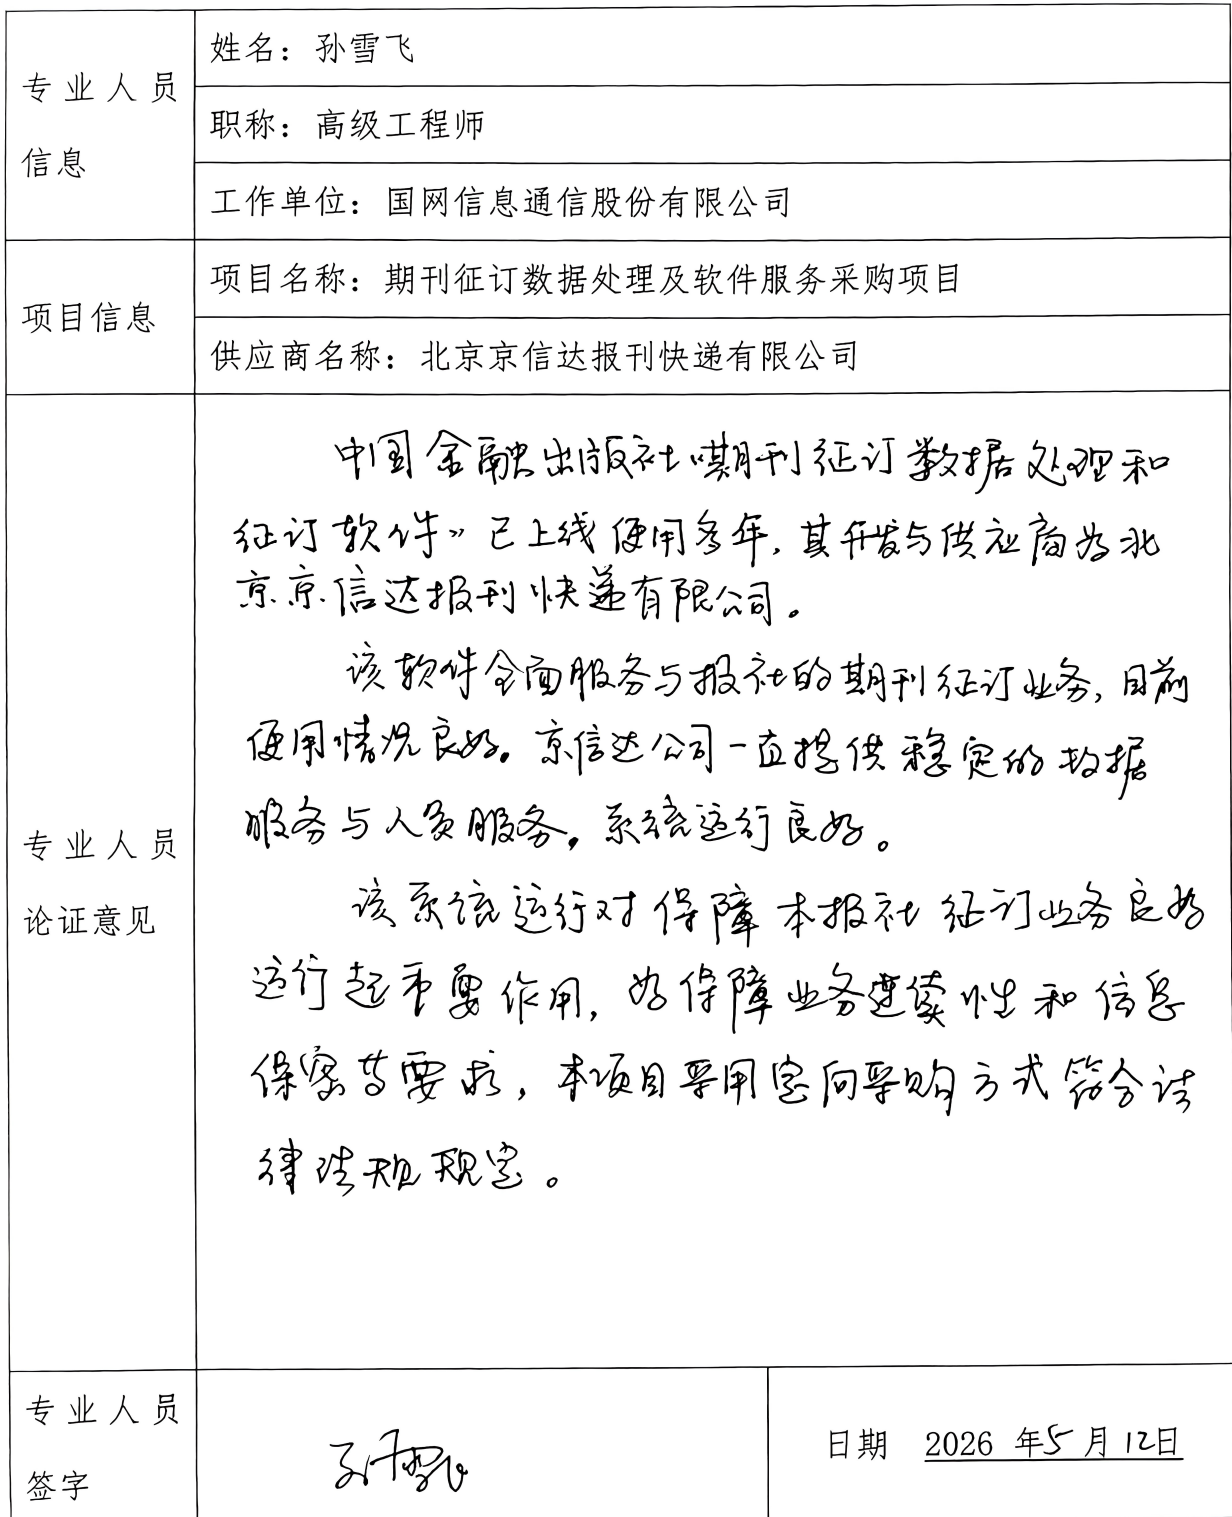 专业人员
信息
姓名：孙雪飞
职称：高级工程师
工作单位：国网信息通信股份有限公司
项目信息
项目名称：期刊征订数据处理及软件服务采购项目
供应商名称：北京京信达报刊快递有限公司
专业人员
论证意见
中国金融出版社“期刊征订数据处理和
征订软件”已上线使用多年，其开发与供应商为北
京京信达报刊快递有限公司。
该软件全面服务与报社的期刊征订业务，目前
使用情况良好。京信达公司一直提供稳定的数据
服务与人员服务，系统运行良好。
该系统运行对保障本报社征订业务良好
运行起重要作用，为保障业务连续性和信息
保密等要求，本项目采用定向采购方式符合法
律法规规定。
专业人员
签字
孙雪飞
日期 2026 年5月12日